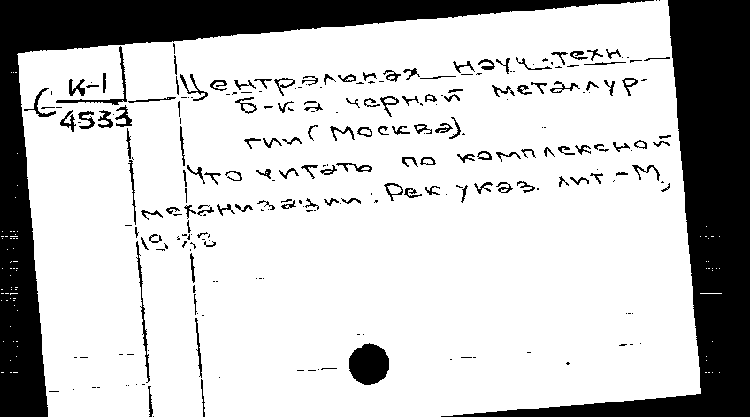 С К-1
4533
Центральная науч.-техн.
б-ка черной металлур-
гии (Москва).
Что читать по комплексной
механизации: Рек. указ. лит.-М,